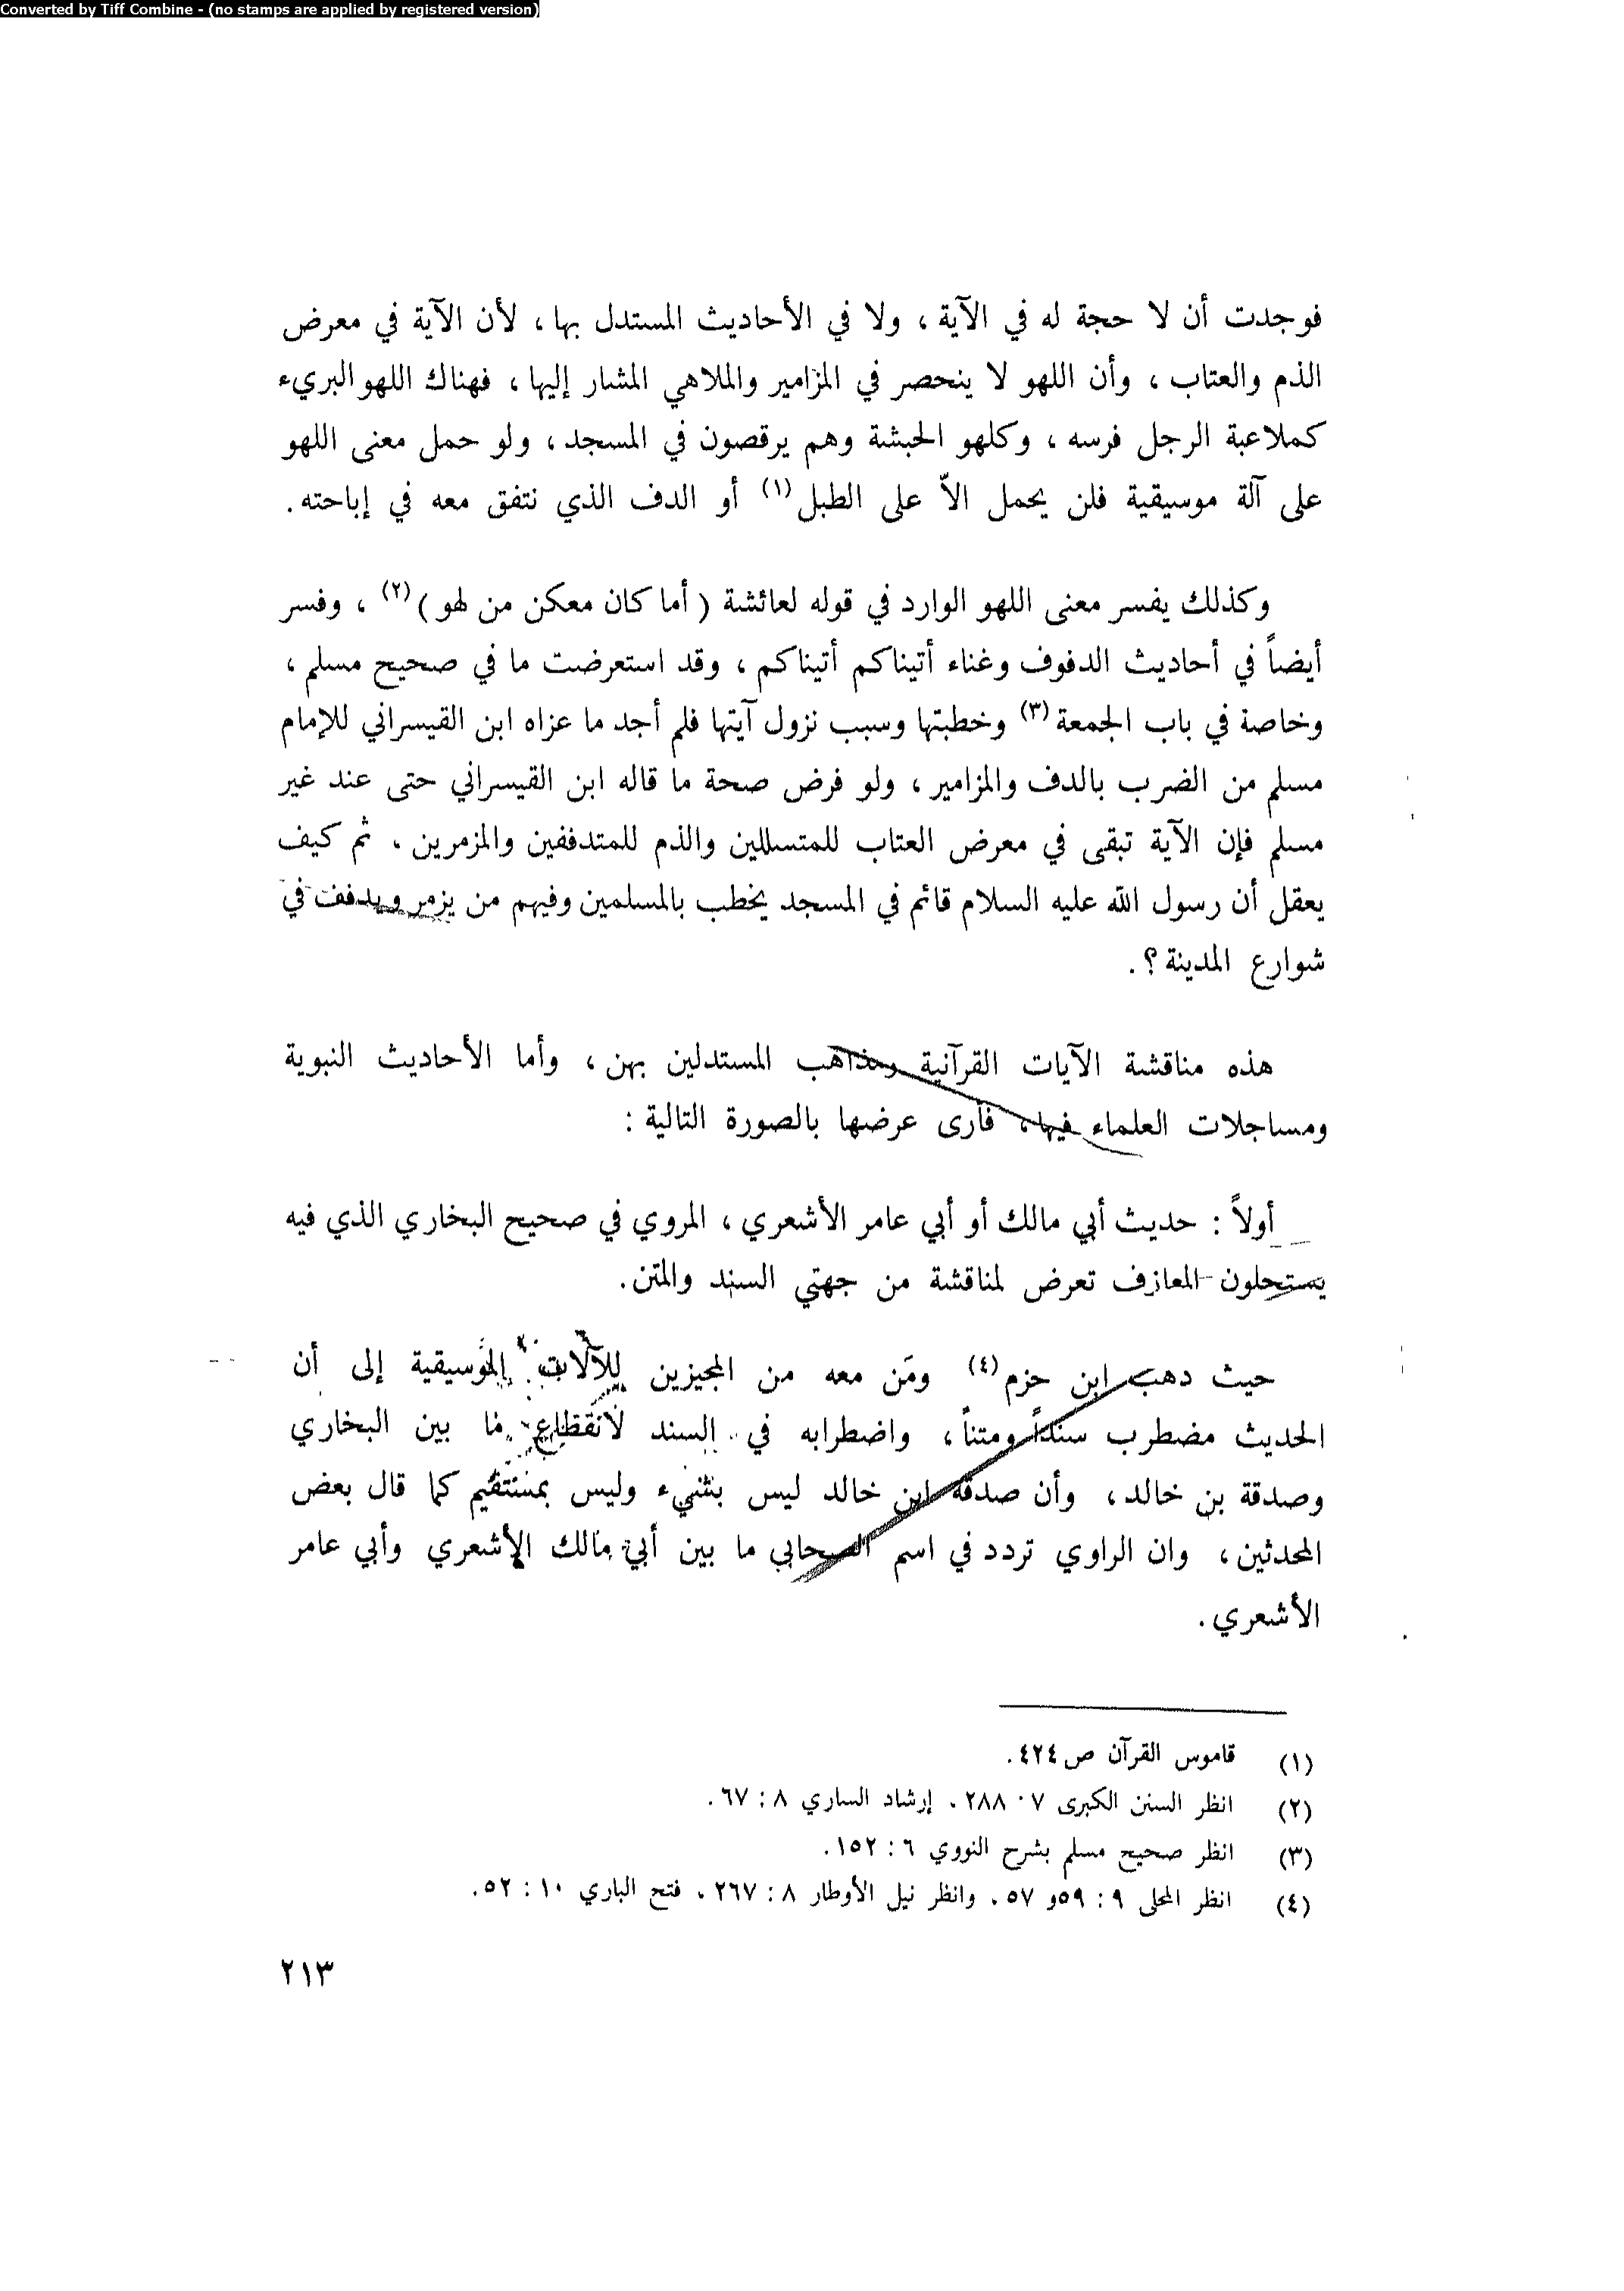 Converted by Tiff Combine - (no stamps are applied by registered version)
فوجدت أن لا حجة له في الآية ، ولا في الأحاديث المستدل بها ، لأن الآية في معرض
الذم والعتاب ، وأن اللهو لا ينحصر في المزامير والملاهي المشار إليها ، فهناك اللهو البريء
كملاعبة الرجل فرسه ، وكلهو الحبشة وهم يرقصون في المسجد ، ولو حمل معنى اللهو
على آلة موسيقية فلن يحمل الاّ على الطبل (١) أو الدف الذي نتفق معه في إباحته .
وكذلك يفسر معنى اللهو الوارد في قوله لعائشة ( أما كان معكن من لهو ) (٢) ، وفسر
أيضاً في أحاديث الدفوف وغناء أتيناكم أتيناكم ، وقد استعرضت ما في صحيح مسلم ،
وخاصة في باب الجمعة (٣) وخطبتها وسبب نزول آيتها فلم أجد ما عزاه ابن القيسراني للإمام
مسلم من الضرب بالدف والمزامير ، ولو فرض صحة ما قاله ابن القيسراني حتى عند غير
مسلم فإن الآية تبقى في معرض العتاب للمتسللين والذم للمتدففين والمزمرين . ثم كيف
يعقل أن رسول الله عليه السلام قائم في المسجد يخطب بالمسلمين وفيهم من يزمر ويدفف في
شوارع المدينة ؟ .
هذه مناقشة الآيات القرآنية ومذاهب المستدلين بهن ، وأما الأحاديث النبوية
ومساجلات العلماء فيها ، فأرى عرضها بالصورة التالية :
أولاً : حديث أبي مالك أو أبي عامر الأشعري ، المروي في صحيح البخاري الذي فيه
يستحلون المعازف تعرض لمناقشة من جهتي السند والمتن .
حيث ذهب ابن حزم (٤) ومَن معه من المجيزين للآلات الموسيقية إلى أن
الحديث مضطرب سنداً ومتناً ، واضطرابه في السند لانقطاع ما بين البخاري
وصدقة بن خالد ، وأن صدقة ابن خالد ليس بشيء وليس بمستقيم كما قال بعض
المحدثين ، وان الراوي تردد في اسم الصحابي ما بين أبي مالك الأشعري وأبي عامر
الأشعري .
(١) قاموس القرآن ص ٤٢٤ .
(٢) انظر السنن الكبرى ٧ : ٢٨٨ ، إرشاد الساري ٨ : ٦٧ .
(٣) انظر صحيح مسلم بشرح النووي ٦ : ١٥٢ .
(٤) انظر المحلى ٩ : ٥٩ و ٥٧ ، وانظر نيل الأوطار ٨ : ٢٦٧ ، فتح الباري ١٠ : ٥٢ .
٢١٣